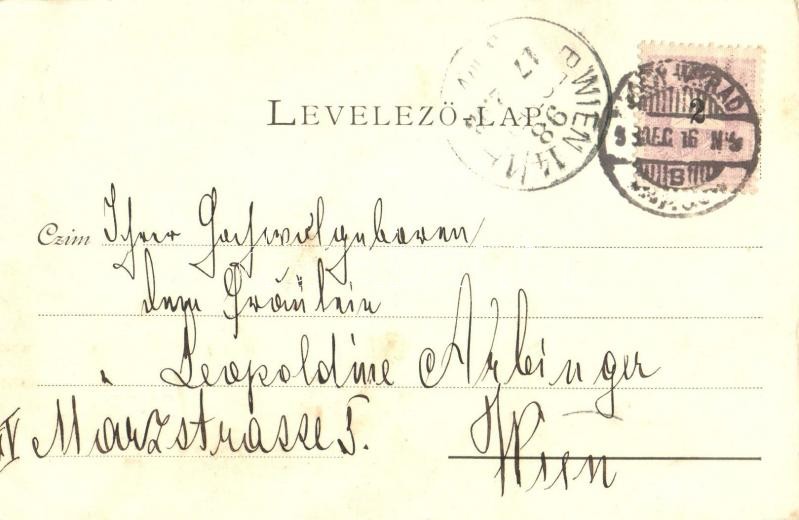 LEVELEZŐ-LAP.
WIEN 14/1
17
98
2
DEC 16
B
Czim Ihrer Hochwolgeboren
dem Fräulein
Leopoldine Arbinger
XIV Märzstrasse 5.
Wien